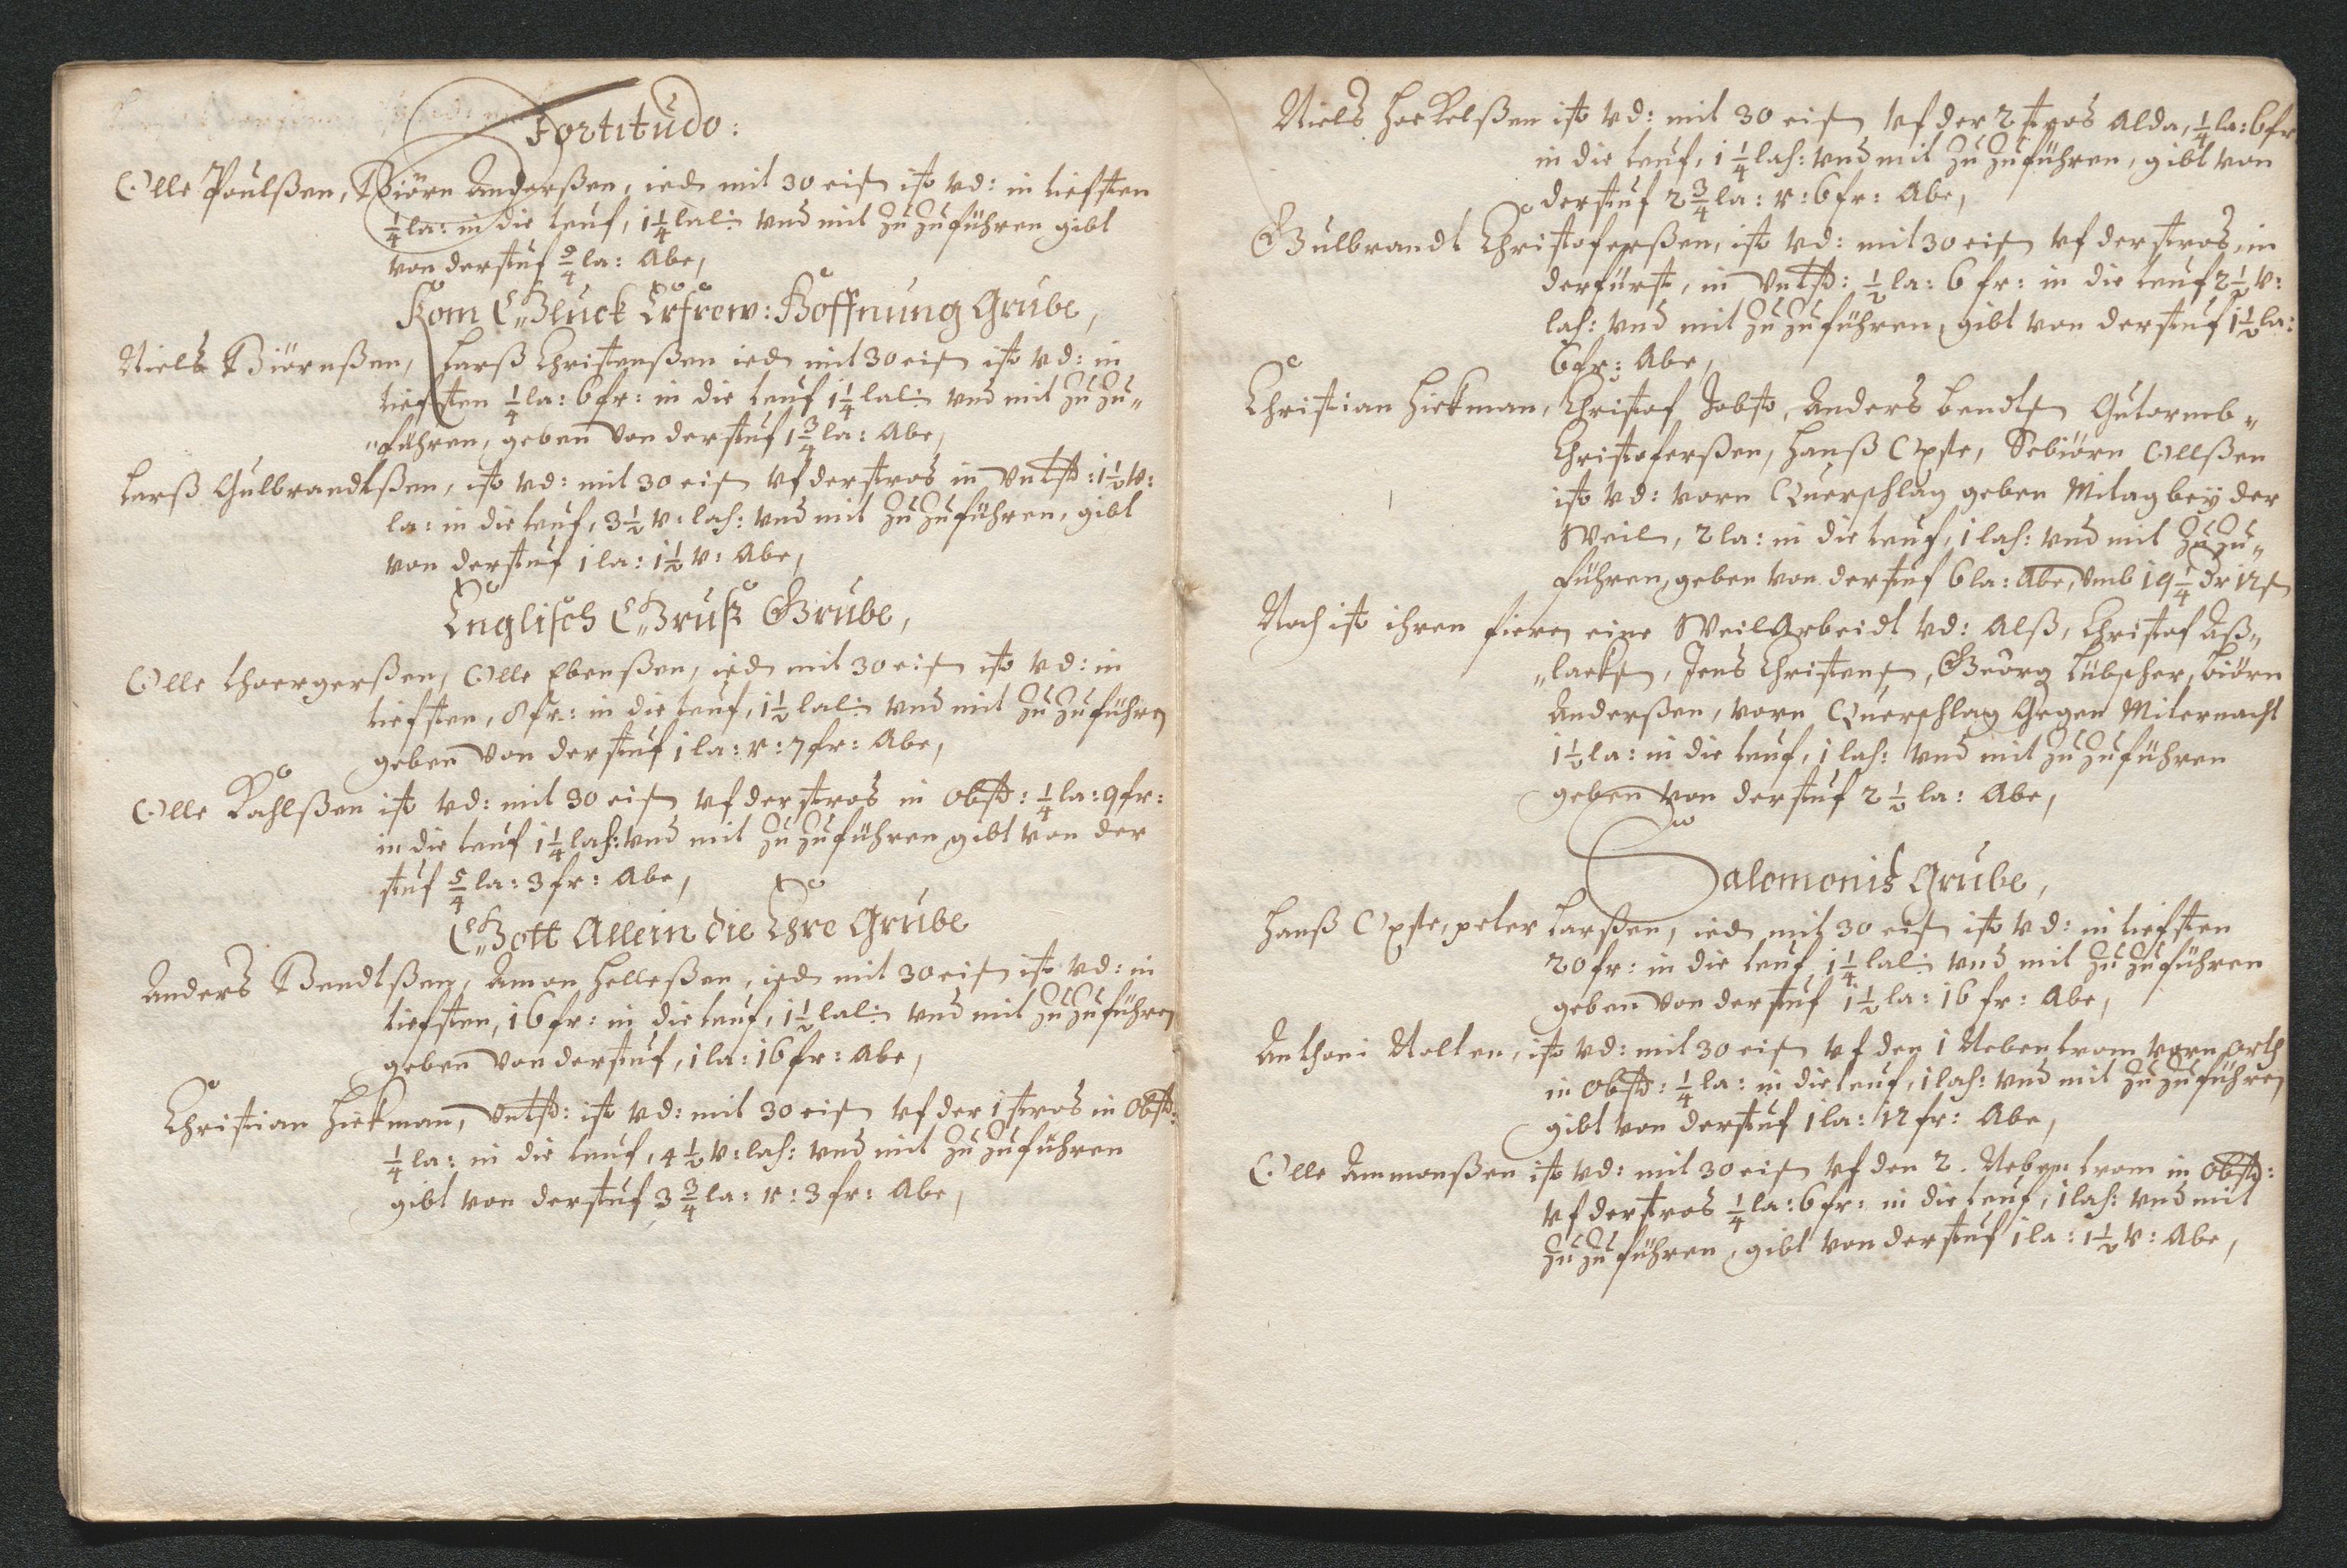 Fortitudo:
Olle Poulßen, Biörn Anderßen, ied mit 30 eisen ist vd: in tieffsten
1/4 la: in die teuf, 1 1/4 lal: vnd mit Zu Zuführen gibt
von der stuf 9/4 la: Abe,
Kom Gluck Erfrew: Hoffnung Grube,
Niels Biörnßen, Larß Christenßen ied mit 30 eisen ist vd: in
tieffsten 1/4 la: 6 fr: in die teuf 1 1/4 lal: vnd mit Zu Zu„
„führen, geben von der stuf 1 3/4 la: Abe,
Larß Gulbrandtßen, ist vd: mit 30 eisen vf der stros in Vntst: 1 1/2 v:
la: in die teuf, 3 1/2 v: lach: vnd mit Zu Zuführen, gibt
von der stuf 1 la: 1 1/2 v: Abe,
Englisch Gruß Grube,
Olle Thoergerßen, Olle Ebenßen, ied mit 30 eisen ist vd: in
tieffsten, 8 fr: in die teuf, 1 1/2 lal: vnd mit Zu Zuführen
geben von der stuf 1 la: v: 7 fr: Abe,
Olle Kahlßen ist vd: mit 30 eisen vf der stros in Obst: 1/4 la: 9 fr:
in die teuf 1 1/4 lach: vnd mit Zu Zuführen gibt von der
stuf 5/4 la: 3 fr: Abe,
Gott Allein die Ehre Grube
Anders Bendtßen, Amon Helleßen, ied mit 30 eisen ist vd: in
tieffsten, 16 fr: in die teuf, 1 1/2 lal: vnd mit Zu Zuführen
geben von der stuf, 1 la: 16 fr: Abe,
Christian Hickman, Vntst: ist vd: mit 30 eisen vf der 1 stros in Obst:
1/4 la: in die teuf, 4 1/2 v: lach: vnd mit Zu Zuführen
gibt von der stuf 3 3/4 la: v: 3 fr: Abe,
Niels ist vd: mit 30 eisen vf der 2 stros Alda, 1/4 la: 6 fr
in die teuf, 1 1/4 lach: vnd mit Zu Zuführen, gibt von
der stuf 2 3/4 la: v: 6 fr: Abe,
Gulbrandt Christoferßen, ist vd: mit 30 eisen vf der stros, in
der fürst, in Vntst: 1/2 la: 6 fr: in die teuf 2 1/2 v:
lach: vnd mit Zu Zuführen, gibt von der stuf 1 1/2 la:
6 fr: Abe,
Christian Hickman, Christof Jobst, Anders Bendtsen Gutormb„
Christoferßen, Hanß Opste, Sebiörn Ollßen
ist vd: vorn Querschlag geben Mitag bey der
Weil, 2 la: in die teuf, 1 lach: vnd mit Zu Zu„
führen, geben von der stuf 6 la: Abe, vmb 19 1/4 Dr 12 s
Noch ist ihren fieren eine Weil Arbeidt vd: Alß, Christof Aß„
„lacksen, Jens Christensen, Georg Lübscher, Biörn
Anderßen, vorn Querschlag Gegen Miternacht
1 1/2 la: in die teuf, 1 lach: vnd mit Zu Zuführen
geben von der stuf 2 1/2 la: Abe,
Salomonis Grube,
Hanß Opste, peter Larßen, ied mit 30 eisen ist vd: in tieffsten
20 fr: in die teuf 1 1/4 lal: vnd mit Zu Zuführen
geben von der stuf 1 1/2 la: 16 fr: Abe,
Anthoni Nolten, ist vd: mit 30 eisen vf den 1 Neben trom vorn orth
in Obst: 1/4 la: in die teuf, 1 lach: vnd mit Zu Zuführen
gibt von der stuf 1 la: 12 fr: Abe,
Olle Ammonßen ist vd: mit 30 eisen vf den 2. Neben trom in Obst:
vf der stros 1/4 la: 6 fr: in die teuf, 1 lach: vnd mit
Zu Zuführen, gibt von der stuf 1 la: 1 1/2 v: Abe,